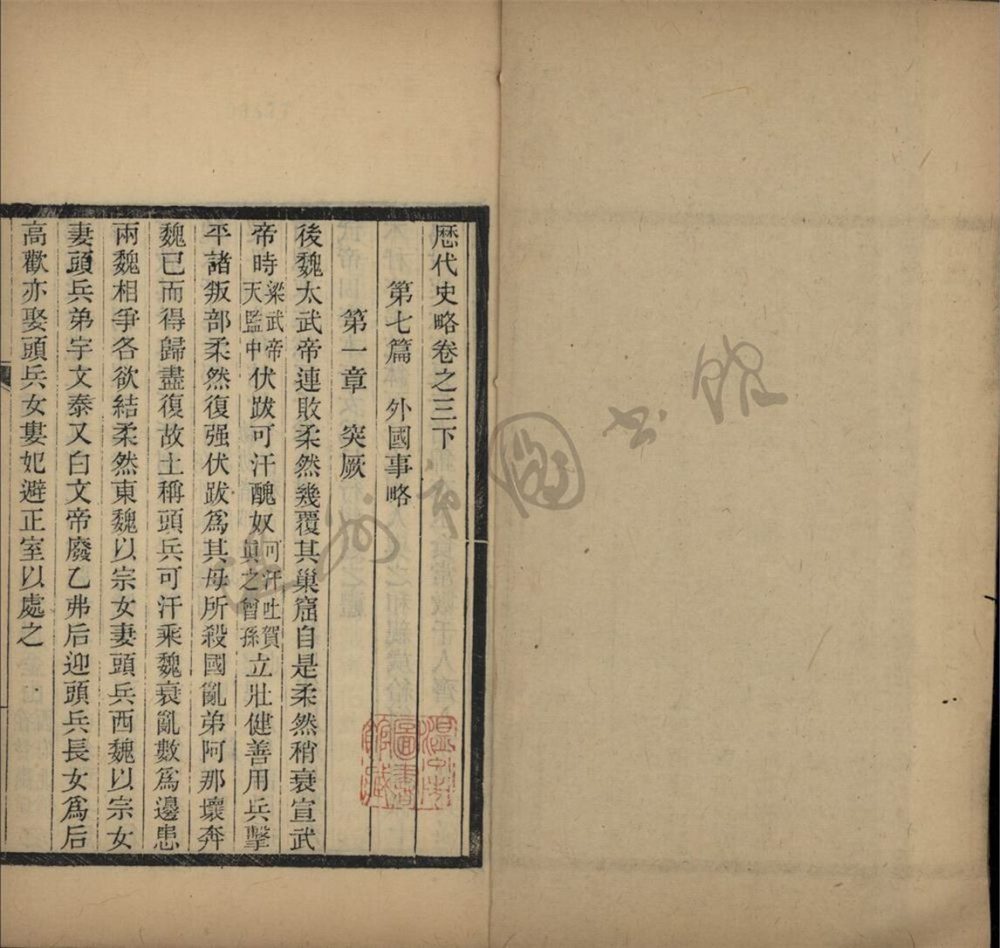 歷代史略卷之三下
第七篇 外國事略
第一章 突厥
後魏太武帝連敗柔然幾覆其巢窟自是柔然稍衰宣武
帝時梁武帝天監中伏跋可汗醜奴可汗吐賀眞之曾孫立壯健善用兵擊
平諸叛部柔然復强伏跋爲其母所殺國亂弟阿那壞奔
魏已而得歸盡復故土稱頭兵可汗乘魏衰亂數爲邊患
兩魏相爭各欲結柔然東魏以宗女妻頭兵西魏以宗女
妻頭兵弟宇文泰又白文帝廢乙弗后迎頭兵長女爲后
高歡亦娶頭兵女婁妃避正室以處之
溫州市圖書館藏
溫州市圖書館